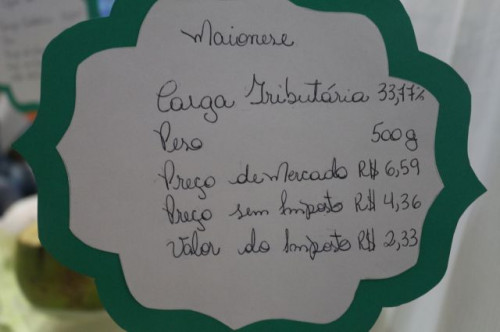 Maionese
Carga Tributária 33,77%
Peso 500g
Preço de Mercado R$ 6,59
Preço sem Imposto R$ 4,36
Valor do Imposto R$ 2,33